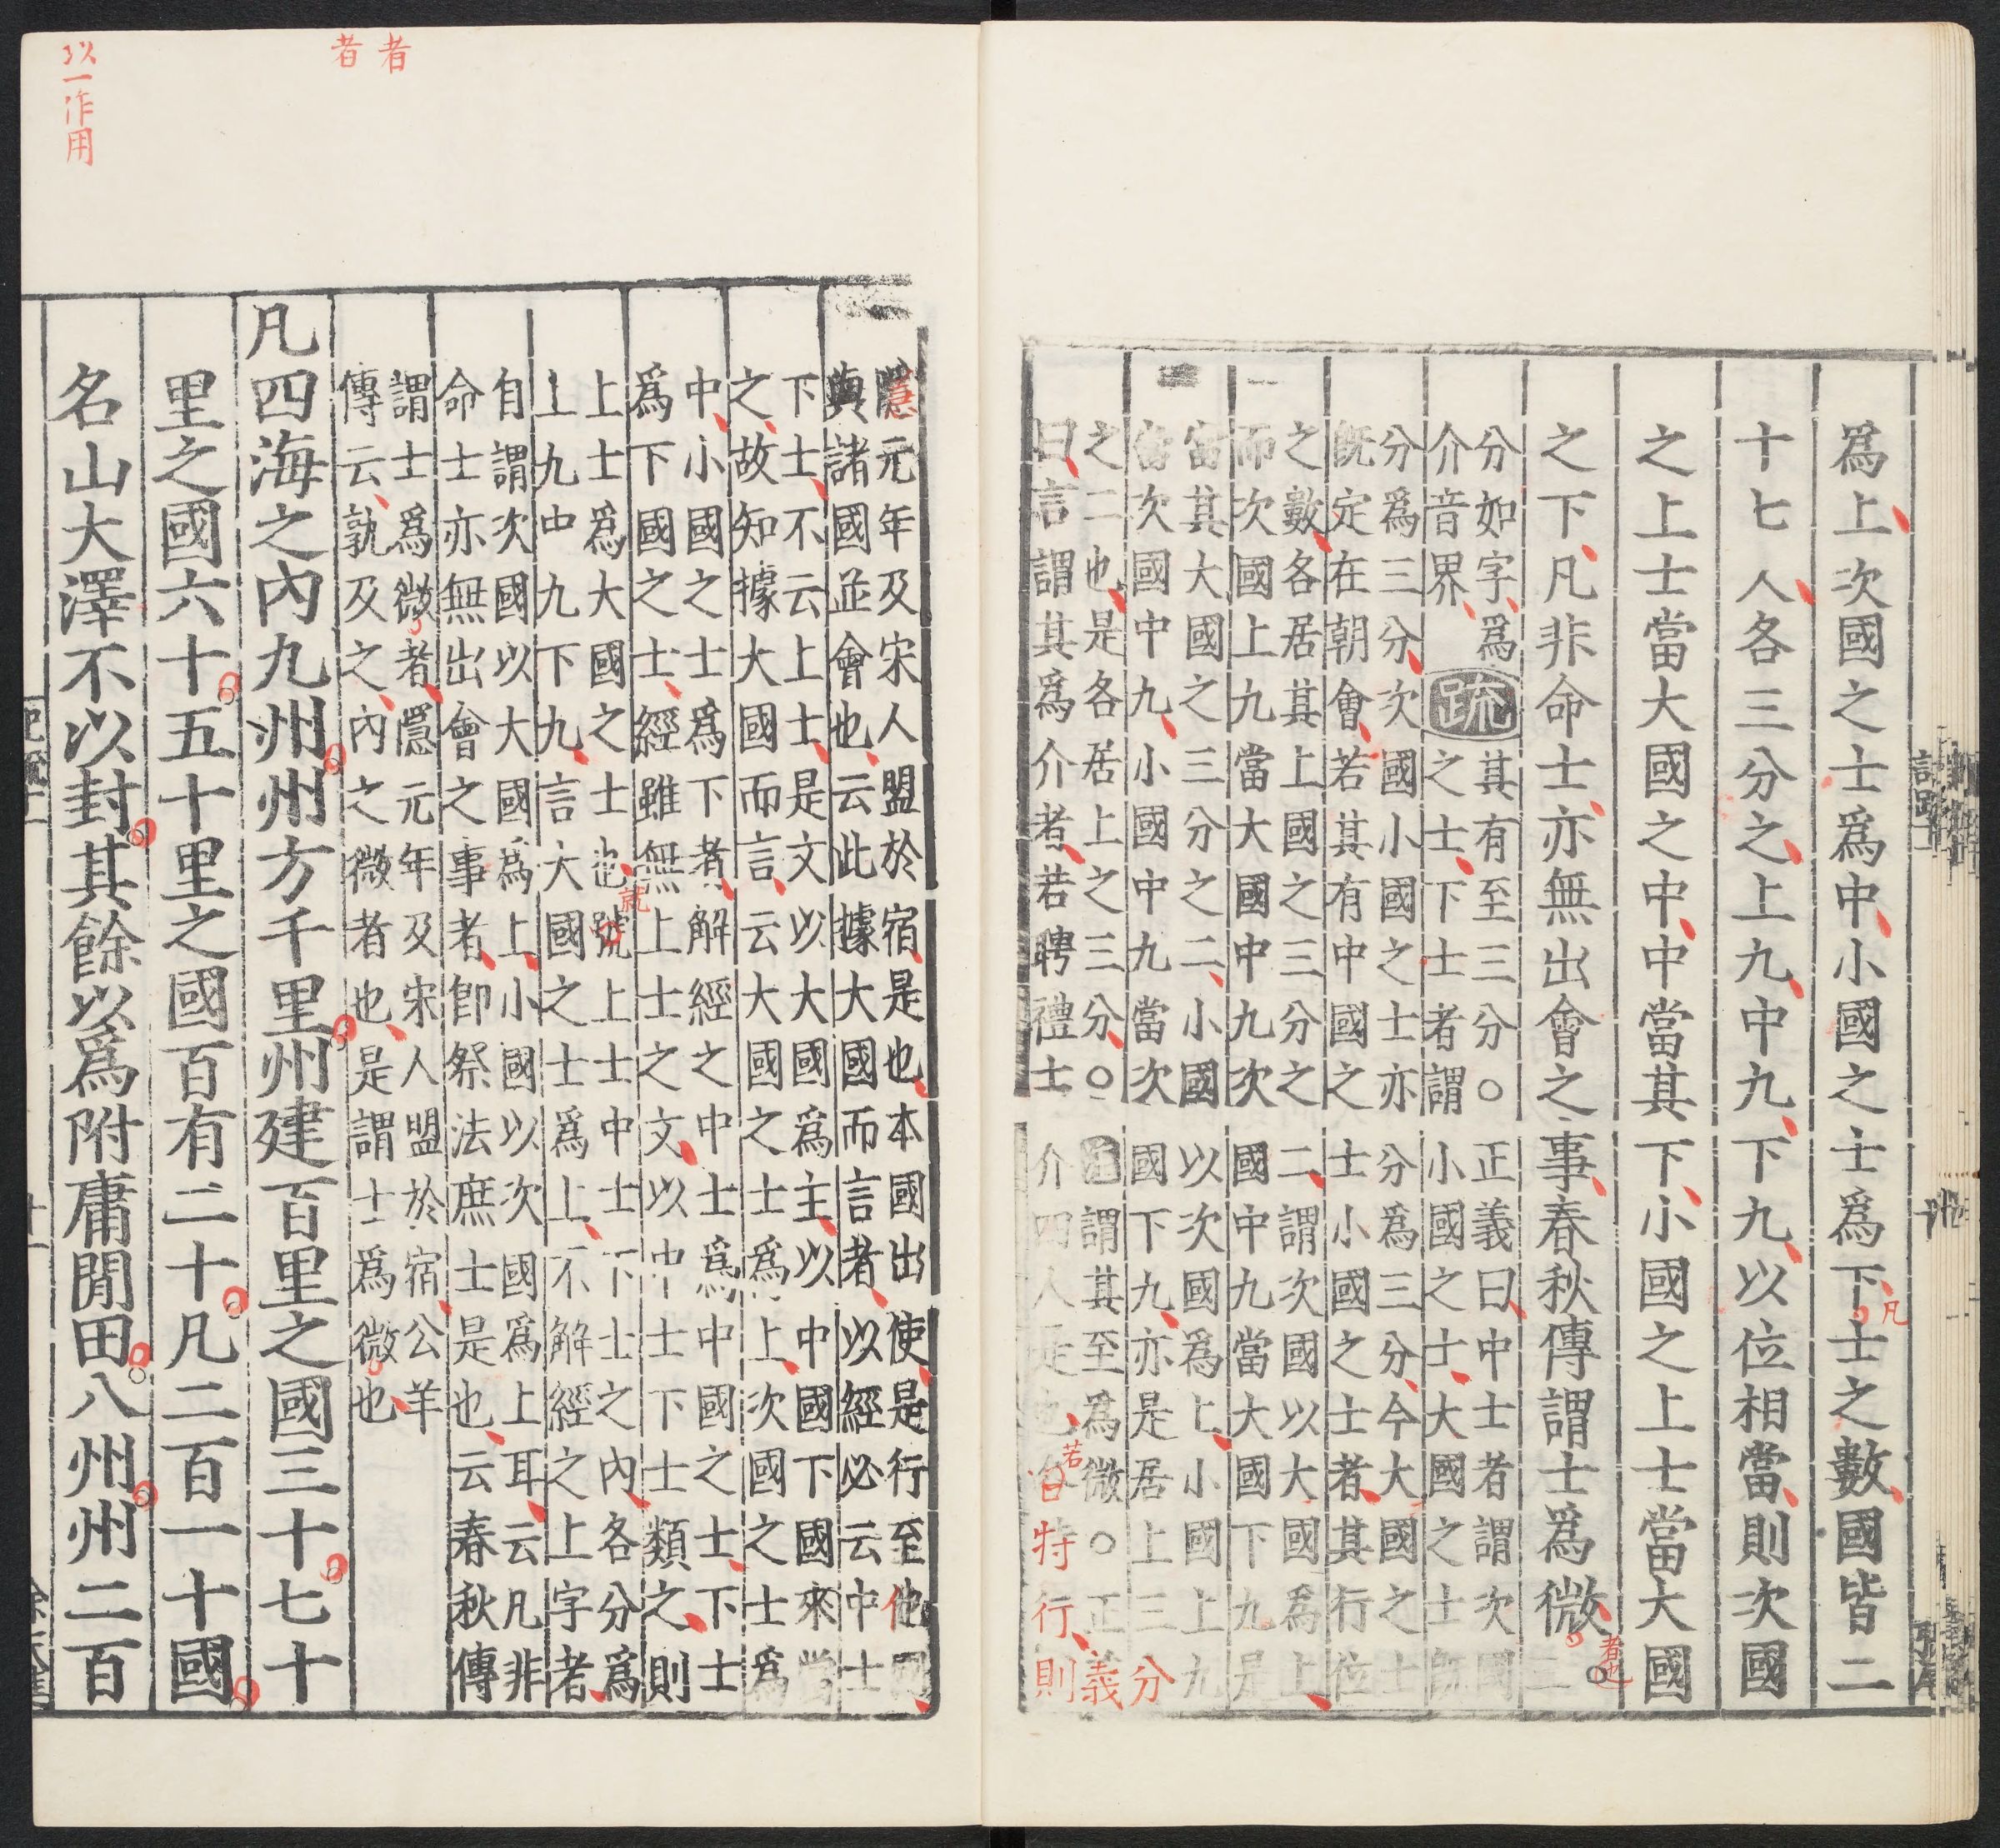 爲上次國之士爲中小國之士爲下士之數國皆二
凡
十七人各三分之上九中九下九以位相當則次國
之上士當大國之中中當其下小國之上士當大國
之下凡非命士亦無出會之事春秋傳謂士爲微二
者也
分如字爲
介音界
疏
其有至三分○正義曰中士者謂次國
之士下士者謂小國之士大國之士既
分爲三分次國小國之士亦分爲三分今大國之士
既定在朝會若其有中國之士小國之士者其行位
之數各居其上國之三分之二謂次國以大國爲上
而次國上九當大國中九次國中九當大國下九是
當其大國之三分之二小國以次國爲上小國上九
當次國中九小國中九當次國下九亦是居上三分
之二也是各居上之三分○注謂其至爲微○正義
曰言謂其爲介者若聘禮士介四人是也若特行則
者
者
以一作用
隱元年及宋人盟於宿是也本國出使是行至他國
與諸國並會也云此據大國而言者以經必云中士
下士不云上士是文以大國爲主以中國下國來當
之故知據大國而言云大國之士爲上次國之士爲
中小國之士爲下者解經之中士爲中國之士下士
爲下國之士經雖無上士之文以中士下士類之則
上士爲大國之士也號上士中士下士之內各分爲
就
上九中九下九言大國之士爲上不解經之上字者
自謂次國以大國爲上小國以次國爲上耳云凡非
命士亦無出會之事者卽祭法庶士是也云春秋傳
謂士爲微者隱元年及宋人盟於宿公羊
傳云孰及之內之微者也是謂士爲微也
凡四海之內九州州方千里州建百里之國三十七十
里之國六十五十里之國百有二十凡二百一十國
名山大澤不以封其餘以爲附庸閒田八州州二百